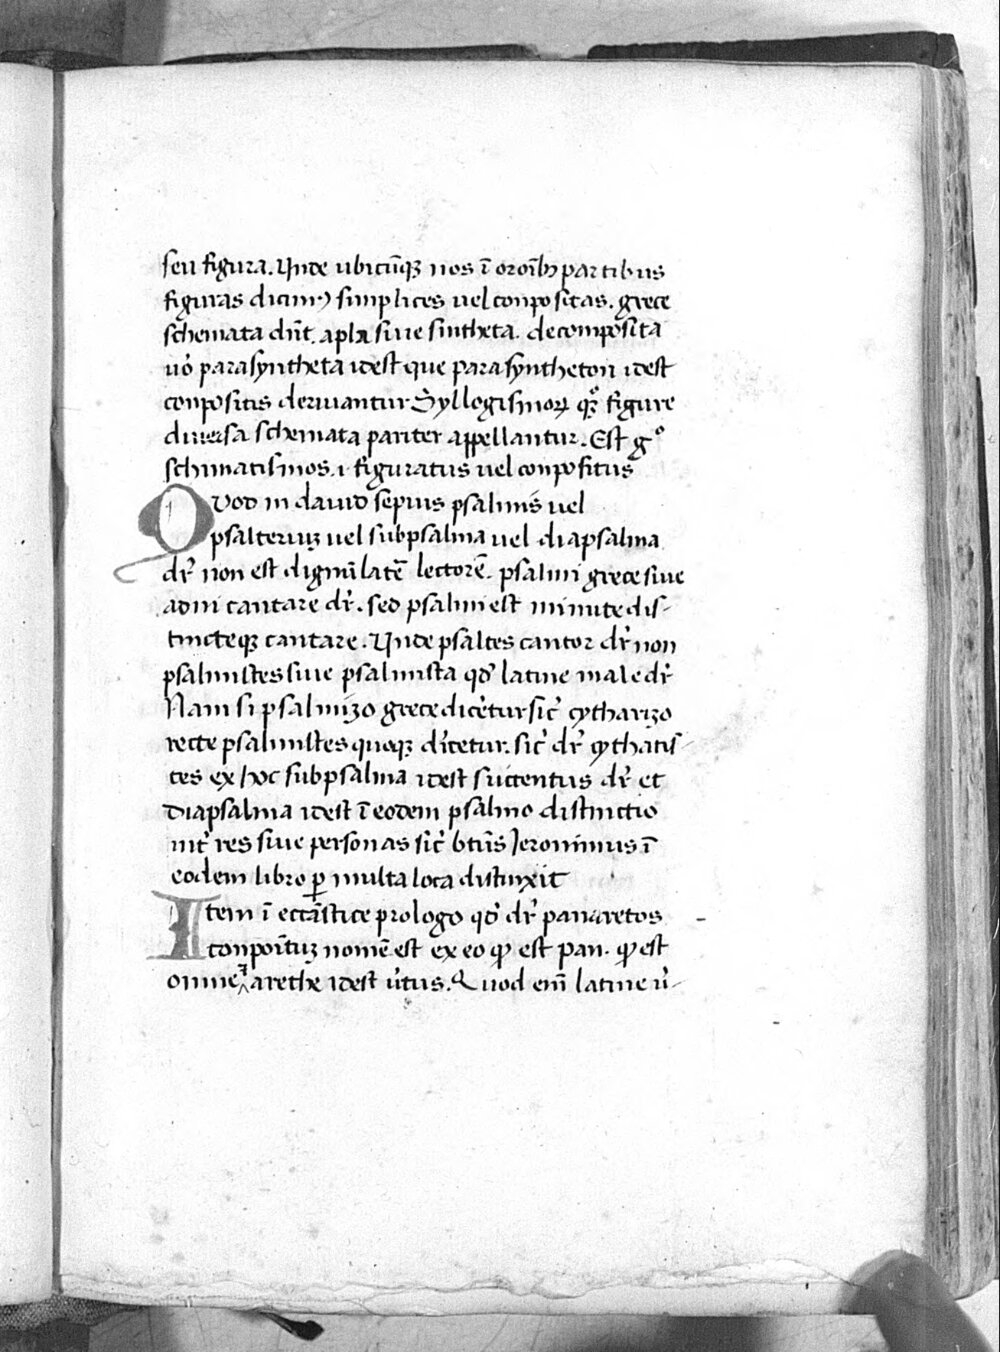 seu figura. Unde ubicūqꝫ nos ī oroībꝫ partibus
figuras dicimꝰ simplices uel conpositas. grece
schemata dn̄t. apla siue sintheta. decomposita
uo᷑ parasyntheta idest que parasyntheton idest
conpositis deriuantur Syllogismoꝝ qꝫ᷑ figure
diuersa schemata pariter appellantur. Est gͦ
schimatismos. i figuratus uel conpositus
QVod in dauid sepius psalmis uel
psalteriuꝫ uel subpsalma uel diapsalma
dr᷑ non est dignū latē lectorē. psalin grece siue
adin cantare dr᷑. sed psalin est minute dis-
tincteqꝫ cantare. Unde psaltes cantor dr᷑ non
psalmistes siue psalmista qd᷑ latine male dr᷑
Nam si psalmizo grece dice᷑tur sic᷑ cytharizo
recte psalmistes quoqꝫ dicetur. sic᷑ dr᷑ cytharis-
tes ex hoc subpsalma idest succentus dr᷑ et
diapsalma idest ī eodem psalmo distinctio
int᷑ res siue personas sic᷑ btūs Jeronimus ī
eodem libro ꝑ multa loca distinxit
Item ī ecclāstice prologo qd᷑ dr᷑ panaretos
conpoītuꝫ nomē est ex eo ꝙ est pan. ꝙ est
omne ⁊ arethe idest u᷑tus. Quod em̄ latine u᷑-